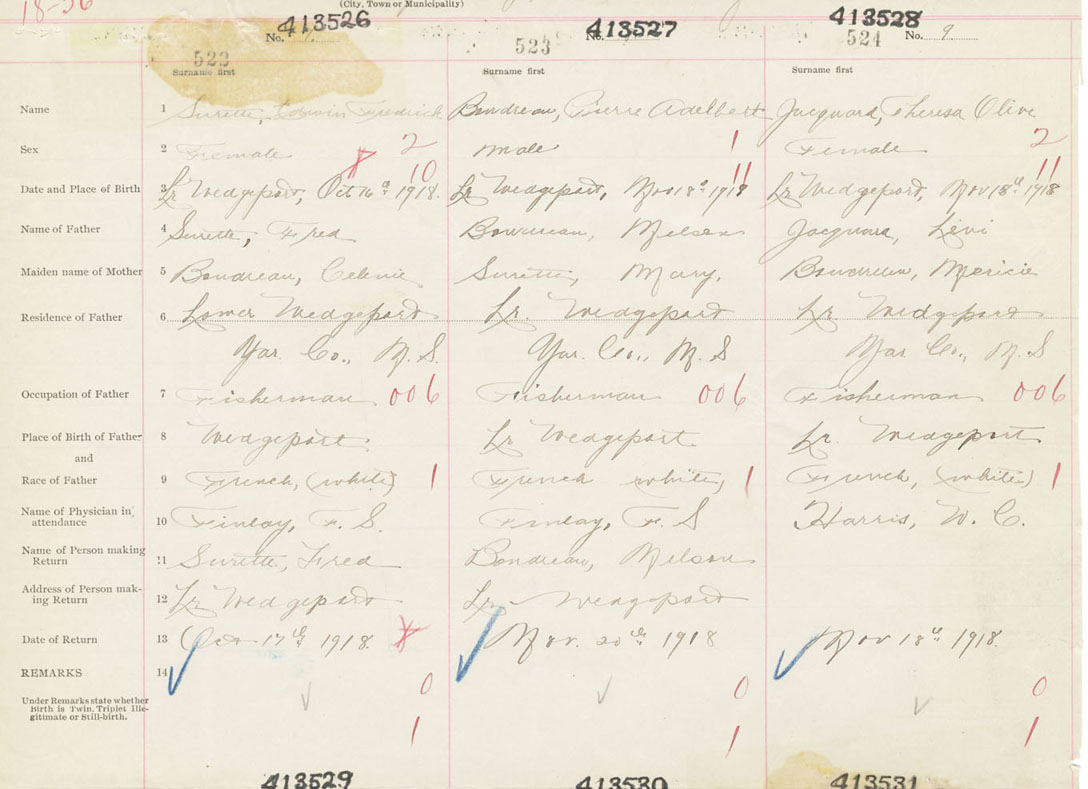 18-36
(City, Town or Municipality)
413526 413527 413528
No. No. No. 9
522 523 524
Surname first Surname first Surname first
Name 1 Surette, Edwin Fredrick Boudreau, Pierre Adelbert Jacquard, Theresa Olive
Sex 2 Female 2 male 1 Female 2
10 11 11
Date and Place of Birth 3 Lr Wedgeport, Oct 16th 1918. Lr Wedgeport, Nov 18th 1918 Lr Wedgeport, Nov 18th 1918
Name of Father 4 Surette, Fred Boudreau, Nelson Jacquard, Levi
Maiden name of Mother 5 Boudreau, Celenie Surette, Mary, Boudreau,
Residence of Father 6 Lower Wedgeport Lr. Wedgeport Lr. Wedgport
Yar. Co., N. S. Yar. Co., N. S Yar Co., N. S
Occupation of Father 7 Fisherman 006 Fisherman 006 Fisherman 006
Place of Birth of Father 8 Wedgeport Lr Wedgeport Lr. Wedgeport
and
Race of Father 9 French, (white) 1 French white, 1 French, (white) 1
Name of Physician in attendance 10 Finlay, F. S. Finlay, F. S Harris, W. C.
Name of Person making Return 11 Surette, Fred Boudreau, Nelson
Address of Person mak-ing Return 12 Lr Wedgeport Lr Wedgeport
Date of Return 13 Oct 17th 1918. Nov. 20th 1918 Nov 18th 1918.
REMARKS 14
0 0 0
Under Remarks state whether
Birth is Twin, Triplet Ille-
gitimate or Still-birth.
1 1 1
413529 413530 413531